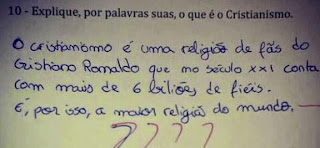 10 - Explique, por palavras suas, o que é o Cristianismo.
O cristianismo é uma religião de fãs do
Cristiano Ronaldo que no século xx1 conta
com mais de 6 biliões de fieis.
É, por isso, a maior religião do mundo.
????